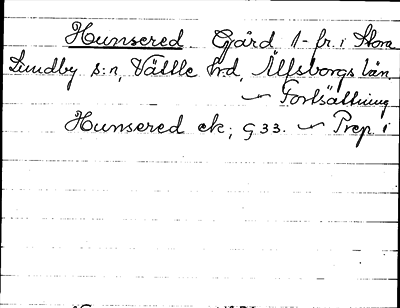 Hunsered Gård 1-fr. i Stora
Lundby s:n, Vättle hrd, Älfsborgs län.
Fortsättning
Hunsered ek; G 33. Prep i